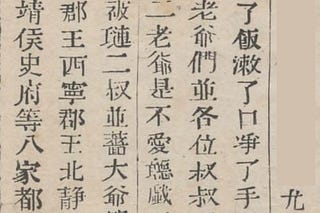 了飯漱了口净了手
老爺們並各位叔叔
二老爺是不愛聽戲
被璉二叔並薔大爺
郡王西寧郡王北靜
靖侯史府等八家都